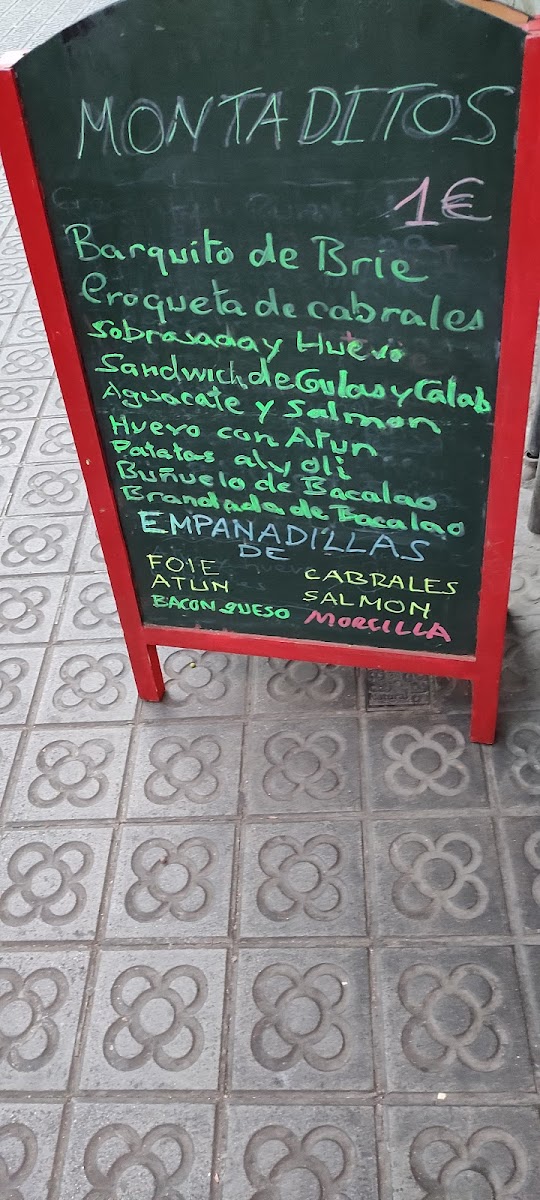 MONTADITOS
1€
Barquito de Brie
Croqueta de cabrales
Sobrasada y Huevo
Sandwich de Gulas y Calab
Aguacate y Salmon
Huevo con Atun
Patatas aly oli
Buñuelo de Bacalao
Brandada de Bacalao
EMPANADILLAS
DE
FOIE
CABRALES
ATUN
SALMON
BACON QUESO
MORCILLA